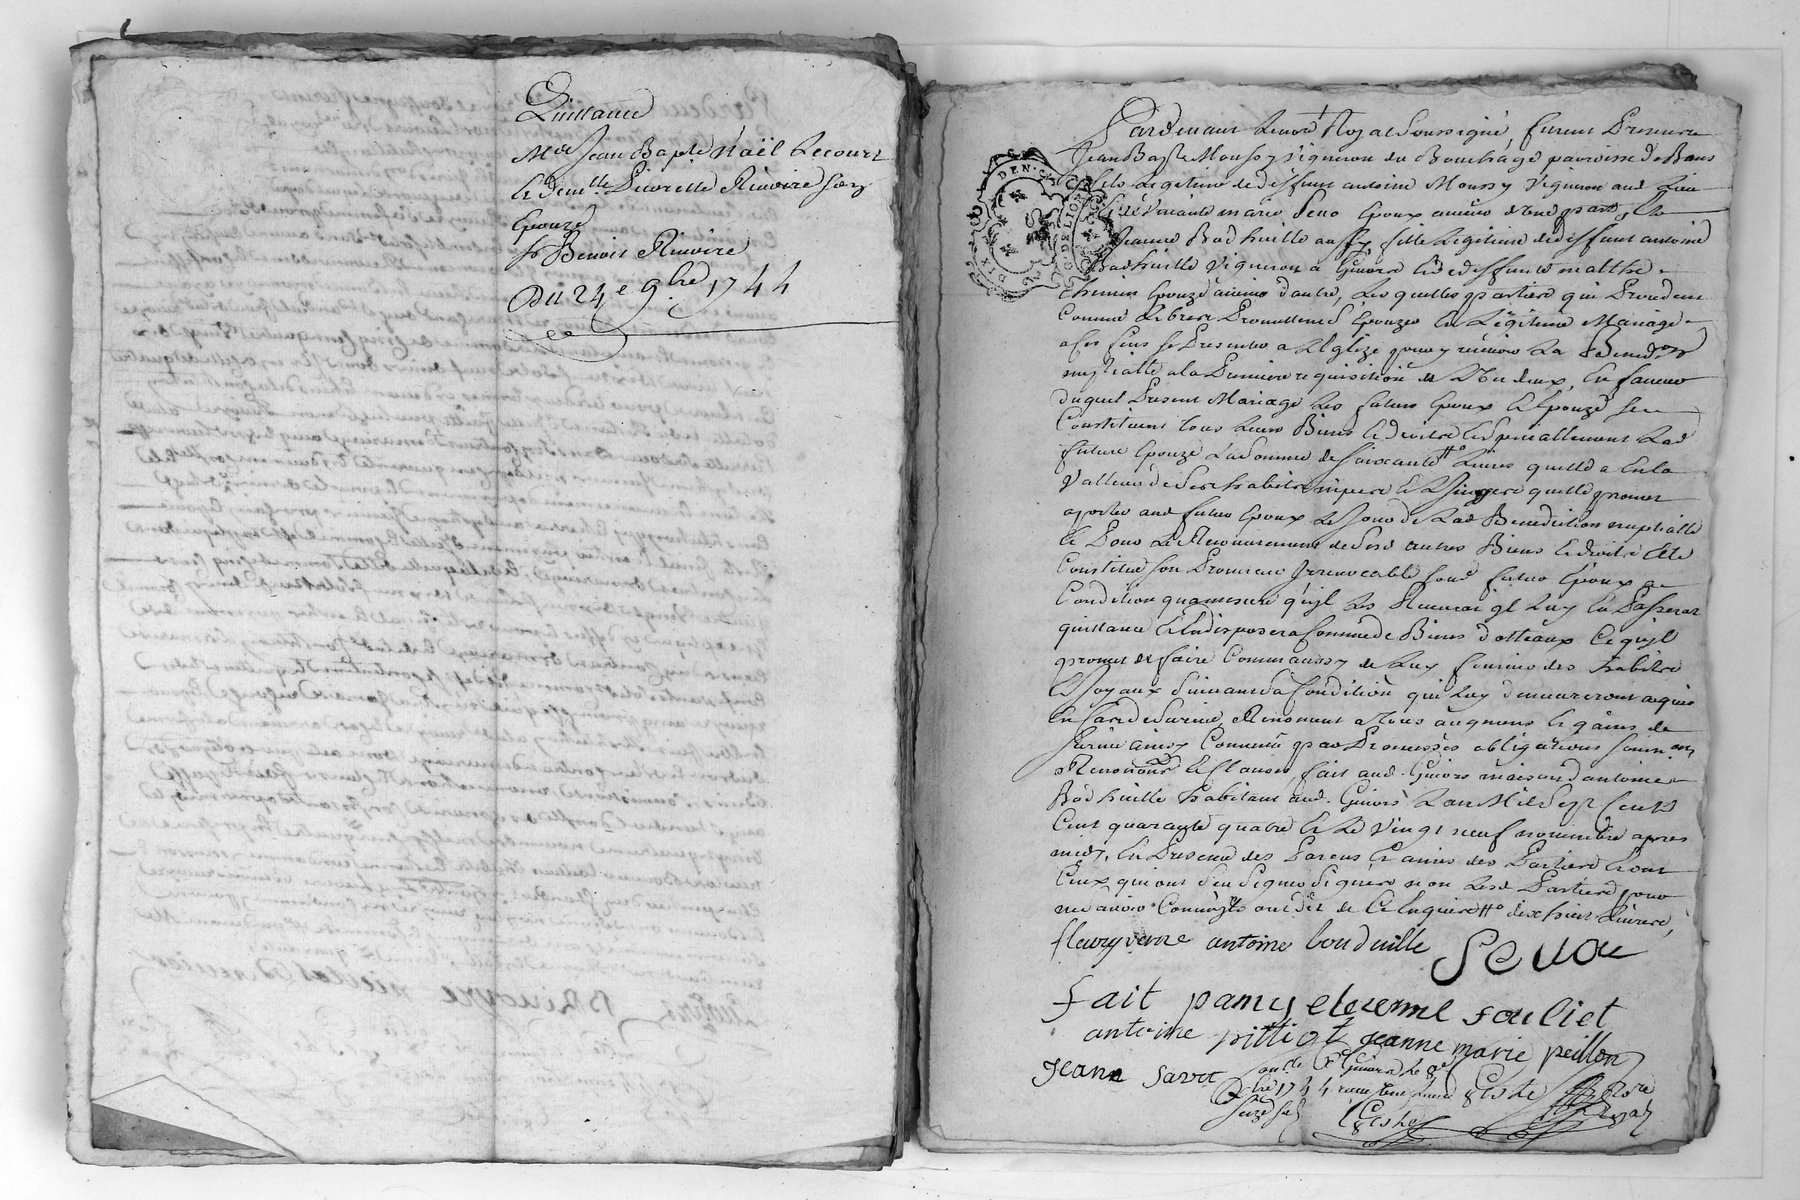 Quittance
Mre Jean Bapte Naël Lecourt
et deulle Pierrette Rivoire son
Epouze
Sr Benoit Rivoire
Du 24e 9bre 1744
Pardevant Le Nore Royal Soussigné, furent Presents
Jean Bapte Moussy Vigneron du Bouchage parroisse de Bans
fils Legitime de deffunt antoine Moussy Vigneron aud Lieu
marie Seno Epoux avenir d'une part, Et
Jeanne Badhuille aussy fille Legitime de deffunt antoine
Badhuille Vigneron a Givors Et de deffunte malthe
Epouze avenir d'autre, Lesquelles parties
comme Libres Promettent S'Epouzer En Legitime Mariage
a ces fins se Presenter a L'Eglize pour y recevoir La Benedon
nuptialle a la Premiere requisition de L'un deux, En faveur
duquel Present Mariage Les futurs Epoux Et Epouze se
Constituent tous Leurs Biens Et droits Et Specialement Lad
future Epouze La Somme de soixante Livres quelle a En la
Valleur de Ses habits Et Linge quelle promet
aporter aud futur Epoux Le Jour de Lad Benediction nuptialle
Et Pour Le Recouvrement de Sesd autres Biens Et droits Elle
Constitue son Procureur Irrevocable sond futur Epoux a
Condition qu'a mesure qu'il Les Recevra il Luy En Passera
quittance Et En disposera Comme de Biens dotteaux Ce qu'il
promet de faire Comm'aussy de Luy fournir des habits
Et Joyaux Suivant Sa Condition qui Luy demeureront acquis
En Cas de Survie, Renoncent a tous augment Et gains de
Survie ainsy Convenu par Promesses obligations soumon
Renonons Et Clauses, fait aud. Givors maison d'antoine
Badhuille habitant aud. Givors L'an Mil Sept Cents
Cent quarante quatre Et Le Vingt neuf novembre apres
midy, En Presence des Parens Et amis des Parties dont
Ceux qui ont Sçu Signer Signerent non Lesd Parties pour
ne Sçavoir Comme ont dit de Ce Enquis dix huit Livres,
fleury verne antoine bouduille Seuoc
fait pancy etecernne foulliet
antoine pittiot jeanne marie peillon
Jean Savit